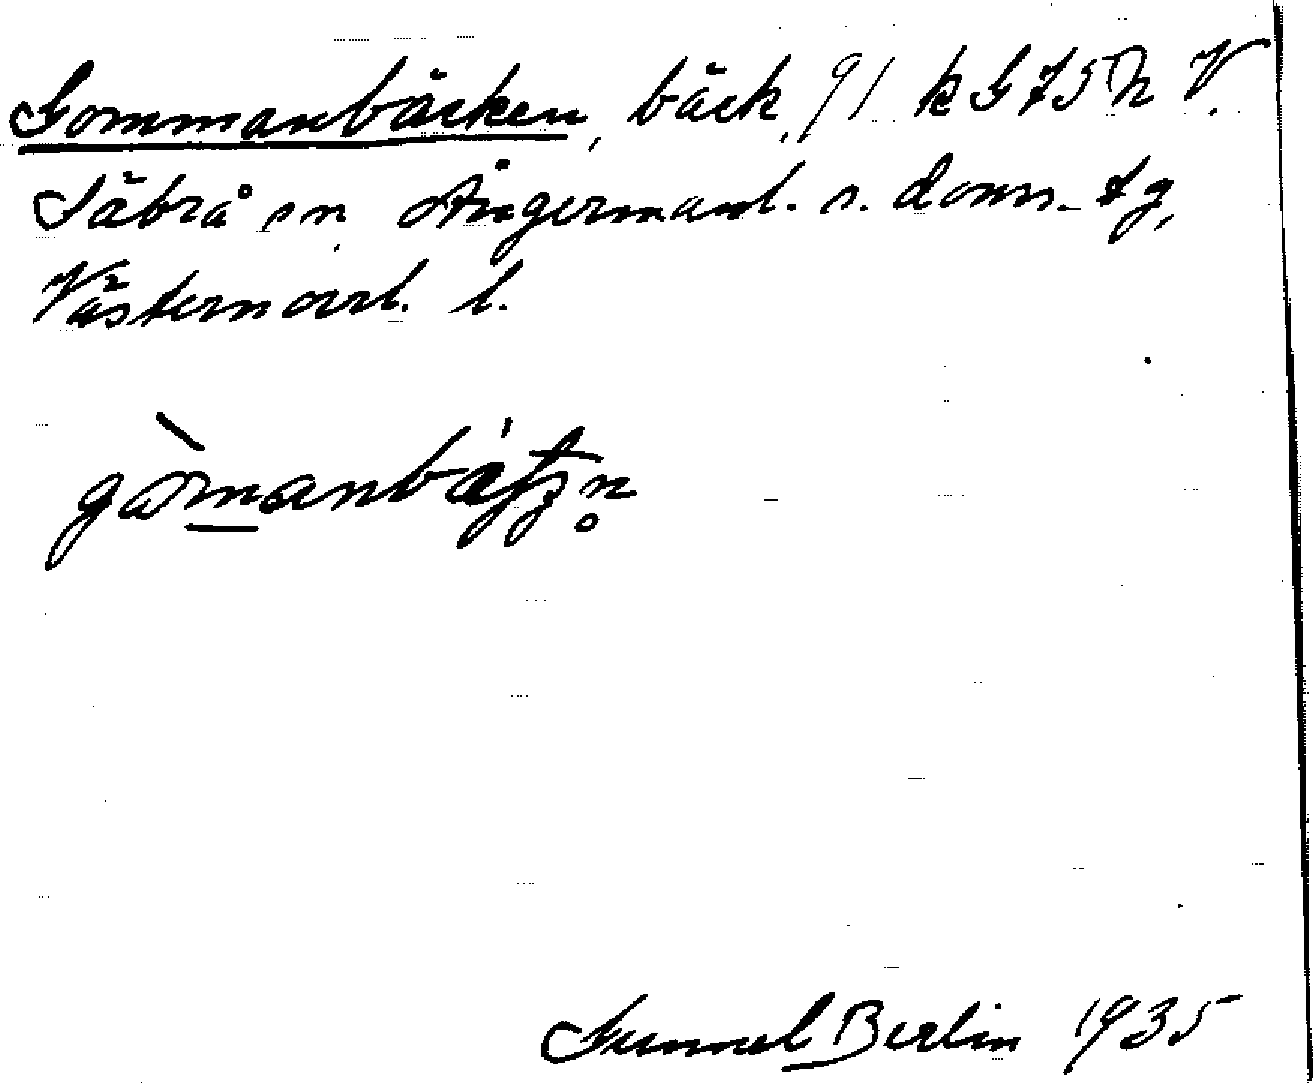 Gommanbäcken, bäck, 91 k G 75 h V.
Säbrå sn, Ångermanl. s. doms. tg,
Västernorrl. l.
Gunnel Berlin 1935